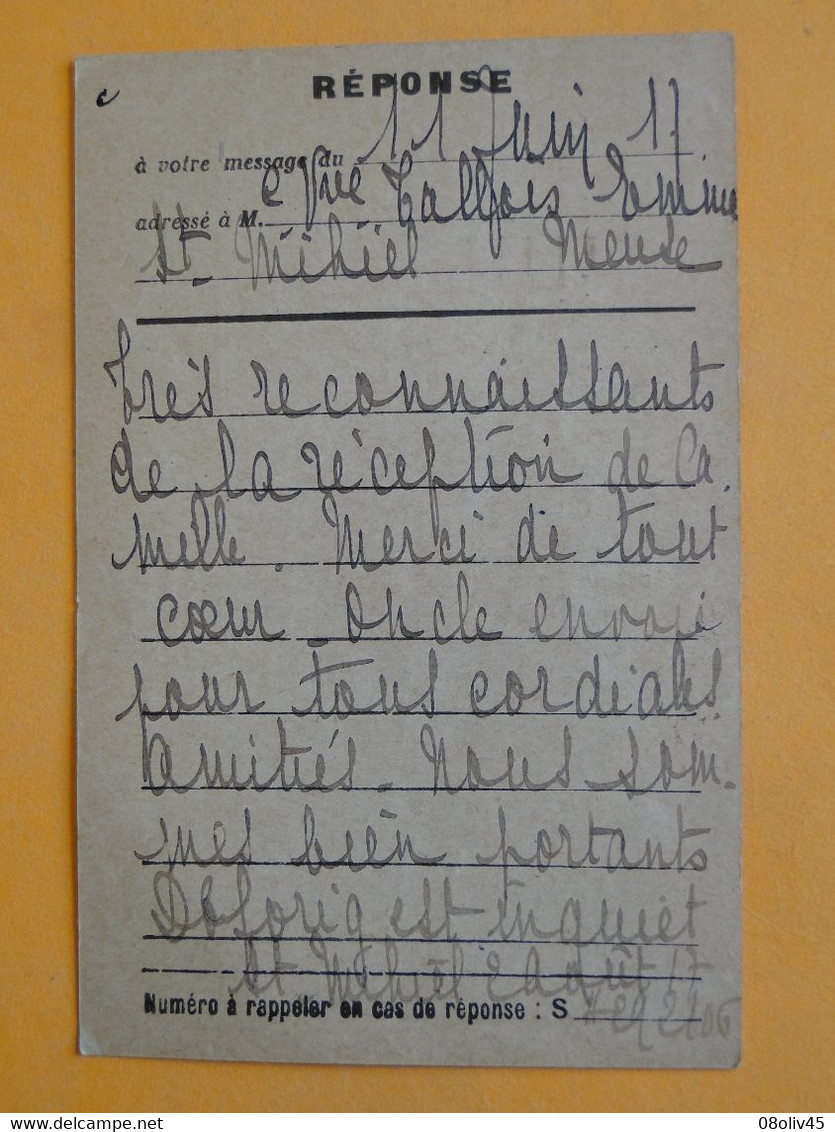 RÉPONSE
à votre message du 11 Juin 17
adressé à M. Vve Emme
St. Mihiel Meuse
Très reconnaissants
de la réception de Ca.
melle. Merci de tout
cœur - Oncle envoi
pour tous cordiales
amitiés - Nous som-
mes bien portants
est inquiet
St Mihiel 2 août 17
Numéro à rappeler en cas de réponse : S
08oliv45